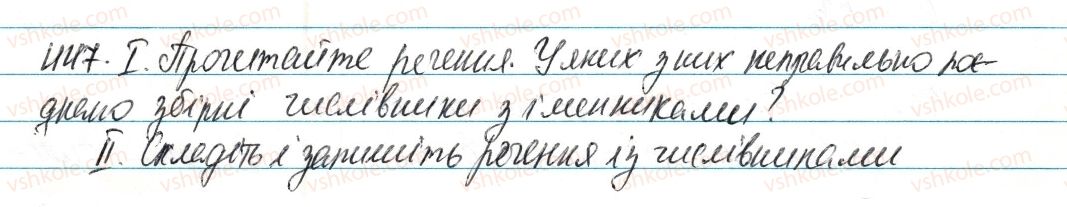 447. І. Прочитайте речення. У яких з них неправильно поє-
днано збірні числівники з іменниками?
ІІ. Складіть і запишіть речення із числівниками